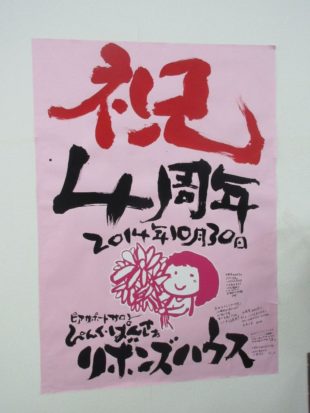 祝
4周年
2014年10月30日
ピアサポートサロン
ぴんくぱんさぁ
リボンズハウス